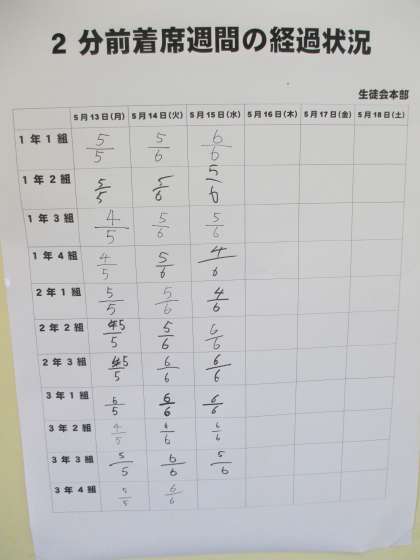 2分前着席週間の経過状況
生徒会本部
5月13日(月) 5月14日(火) 5月15日(水) 5月16日(木) 5月17日(金) 5月18日(土)
1年1組 5/5 5/6 6/6
1年2組 5/5 5/6 5/6
1年3組 4/5 5/6 5/6
1年4組 4/5 5/6 4/6
2年1組 5/5 5/6 4/6
2年2組 5/5 5/6 6/6
2年3組 5/5 6/6 6/6
3年1組 5/5 6/6 6/6
3年2組 4/5 6/6 6/6
3年3組 5/5 6/6 5/6
3年4組 5/5 6/6